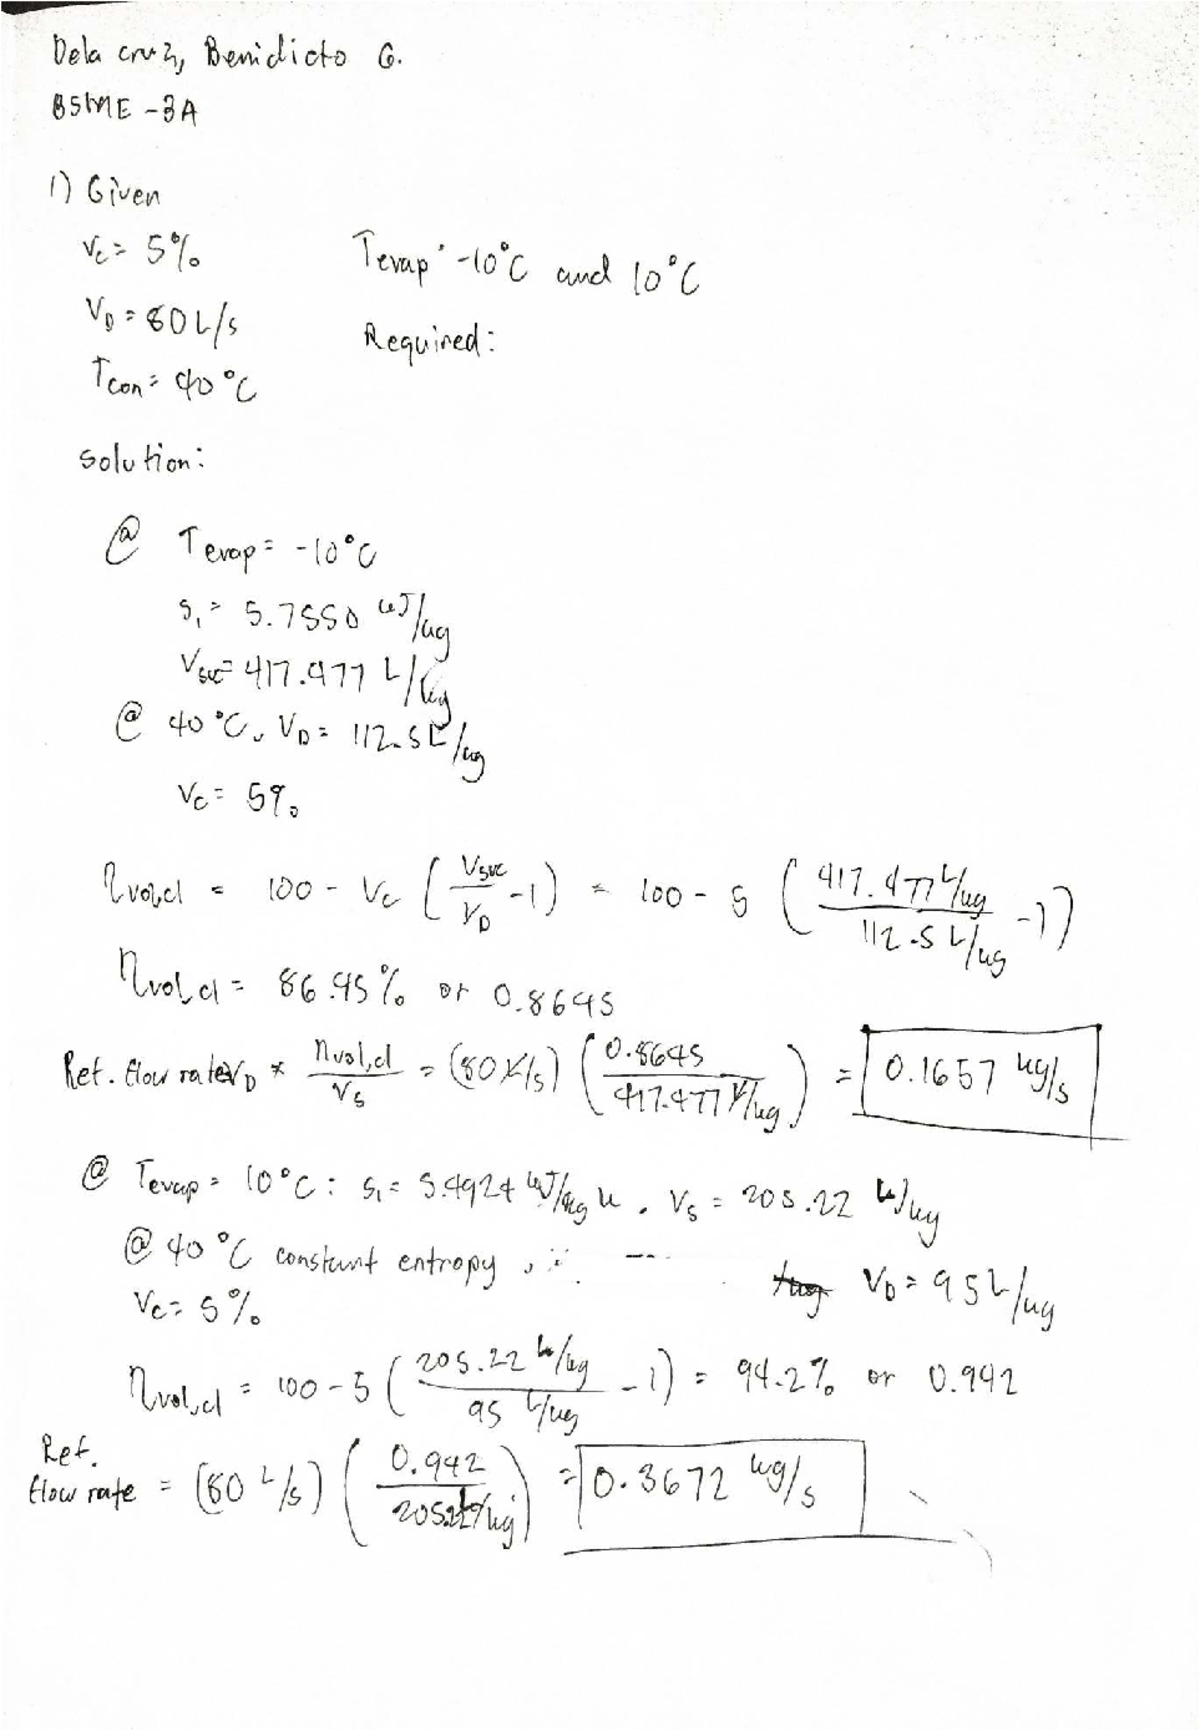 Dela cruz, Benidicto G.
BSME - 3A
1) Given
Vc = 5%
Tevap = -10°C and 10°C
VD = 80 L/s
Required:
Tcon = 40°C
solution:
@ Tevap = -10°C
s1 = 5.7550 kJ/kg
Vsuc = 417.477 L/kg
@ 40°C, VD = 112.5 L/kg
Vc = 5%
ηvol,cl = 100 - Vc (Vsuc/VD - 1) = 100 - 5 (417.477 L/kg / 112.5 L/kg - 1)
ηvol,cl = 86.45% or 0.8645
Ref. flow rate VD * ηvol,cl/Vs = (80 L/s) (0.8645 / 417.477 L/kg) = 0.1657 kg/s
@ Tevap = 10°C: s1 = 5.4924 kJ/kg k. Vs = 205.22 L/kg
@ 40°C constant entropy, VD = 95 L/kg
Vc = 5%
ηvol,cl = 100 - 5 (205.22 L/kg / 95 L/kg - 1) = 94.2% or 0.942
Ref.
flow rate = (80 L/s) (0.942 / 205.22 L/kg) = 0.3672 kg/s